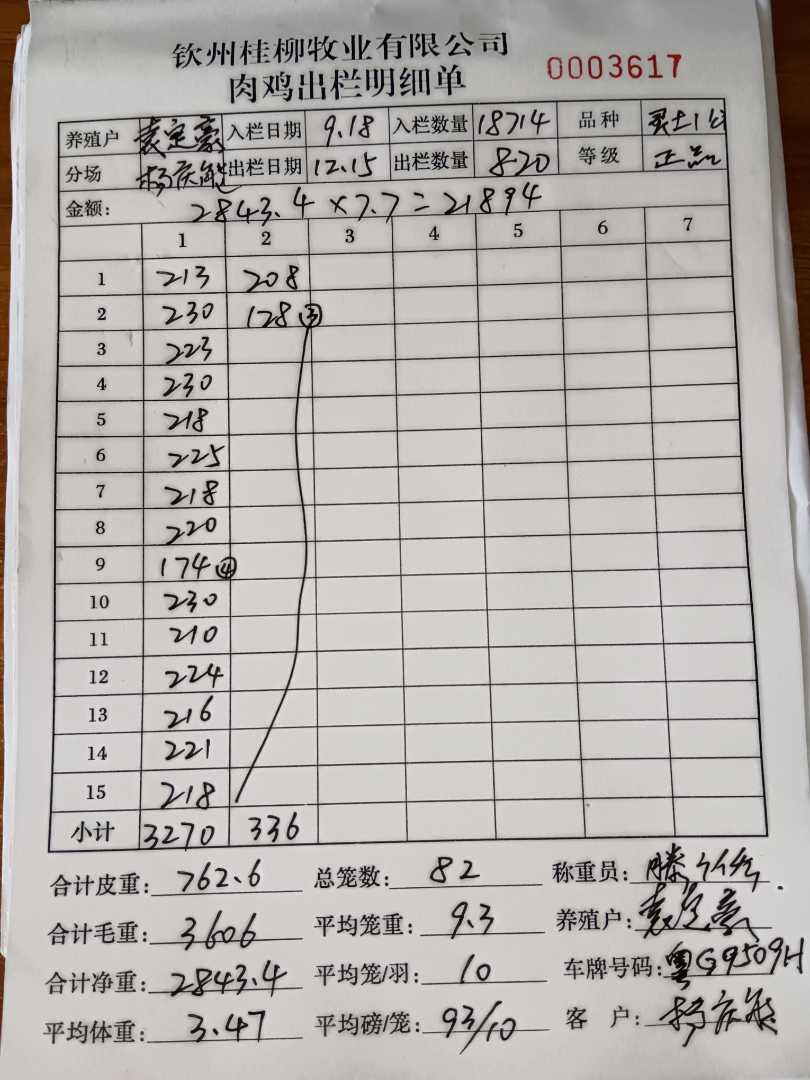 钦州桂柳牧业有限公司
肉鸡出栏明细单 0003617
养殖户 袁定豪 入栏日期 9.18 入栏数量 18714 品种
分场 杨庆能 出栏日期 12.15 出栏数量 820 等级 正品
金额: 2843.4×7.7=21894
1 2 3 4 5 6 7
1 213 208
2 230 128③
3 223
4 230
5 218
6 225
7 218
8 220
9 174④
10 230
11 210
12 224
13 216
14 221
15 218
小计 3270 336
合计皮重: 762.6 总笼数: 82 称重员: 滕
合计毛重: 3606 平均笼重: 9.3 养殖户: 袁定豪
合计净重: 2843.4 平均笼/羽: 10 车牌号码: 粤G9509H
平均体重: 3.47 平均磅/笼: 93/10 客户: 杨庆能